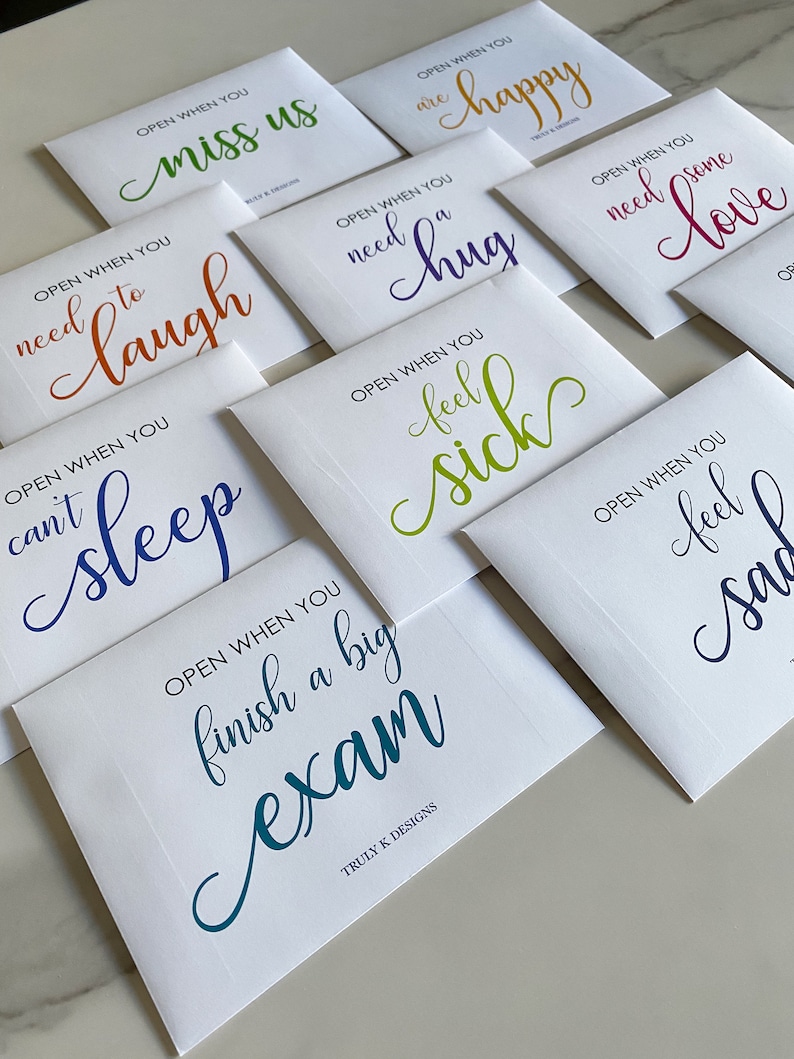 OPEN WHEN YOU
miss us
TRULY K DESIGNS
OPEN WHEN YOU
are happy
TRULY K DESIGNS
OPEN WHEN YOU
need to
laugh
OPEN WHEN YOU
need a
hug
OPEN WHEN YOU
need some
love
OPEN WHEN YOU
can't
sleep
OPEN WHEN YOU
feel
sick
OPEN WHEN YOU
feel
sad
OPEN WHEN YOU
finish a big
exam
TRULY K DESIGNS